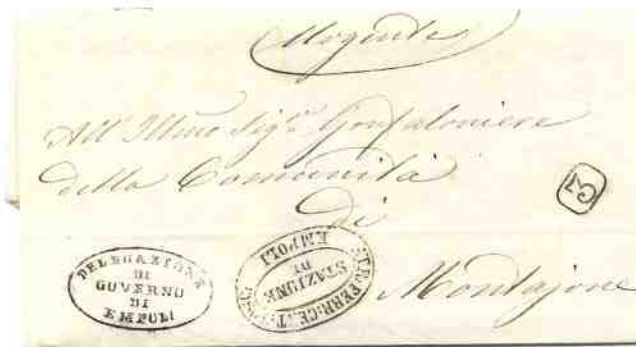 Urgente
All' Illmo Sigr. Gonfaloniere
della Comunità
di
Montajone
3
DELEGAZIONE
DI
GOVERNO
DI
EMPOLI
STAZIONE
DI
EMPOLI